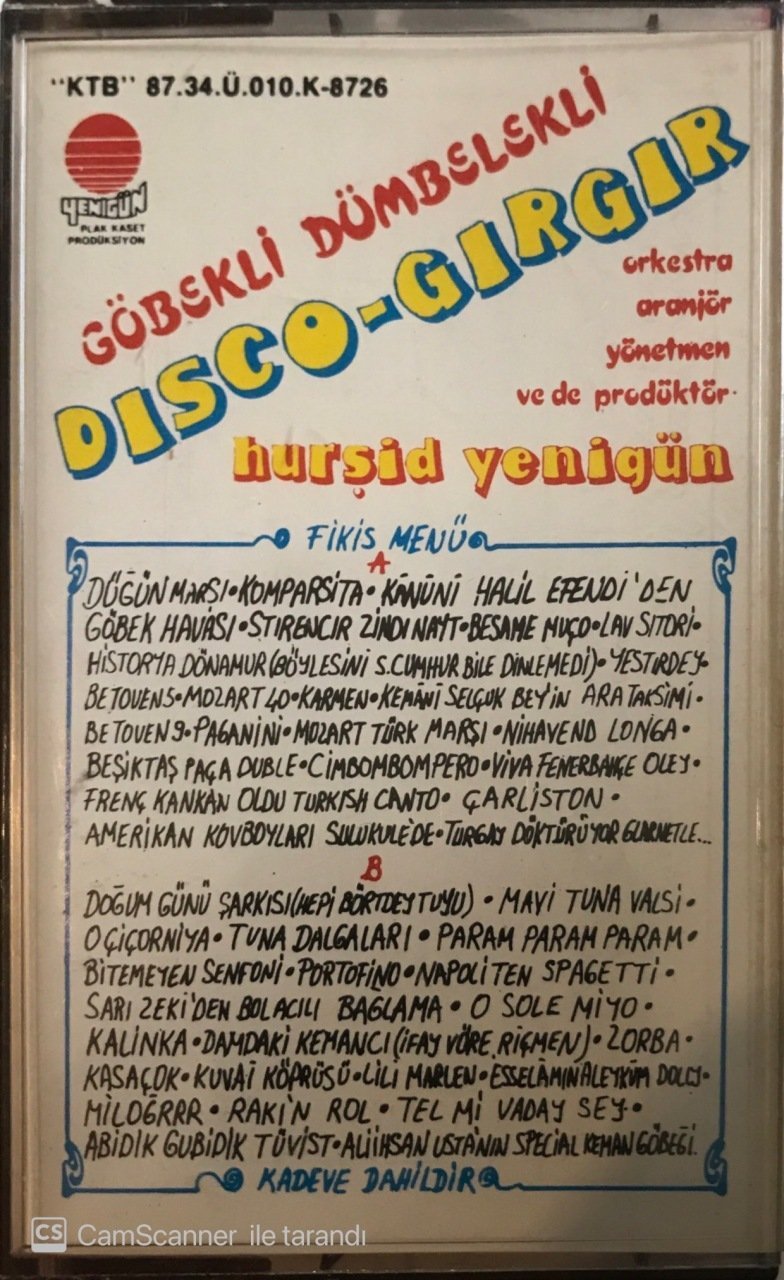 "KTB" 87.34.Ü.010.K-8726
YENİGÜN
PLAK KASET
PRODÜKSİYON
GÖBEKLİ DÜMBELEKLİ
DISCO-GIRGIR
orkestra
aranjör
yönetmen
ve de prodüktör
hurşid yenigün
FİKİS MENÜ
A
DÜĞÜN MARŞI•KOMPARSİTA•KÂNÛNİ HALİL EFENDİ'DEN
GÖBEK HAVASI•STIRENCIR ZİNDI NAYT•BESAME MUÇO•LAV SITORİ•
HİSTORYA DÖNAMUR(BÖYLESİNİ S.CUMHUR BİLE DİNLEMEDİ)•YESTIRDEY•
BETOVEN5•MOZART 40•KARMEN•KEMÂNİ SELÇUK BEY'İN ARA TAKSİMİ•
BETOVEN9•PAGANİNİ•MOZART TÜRK MARŞI•NİHAVEND LONGA•
BEŞİKTAŞ PAÇA DUBLE•CİMBOMBOMPERO•VİVA FENERBAHÇE OLEY•
FRENÇ KANKAN OLDU TURKISH CANTO• ÇARLİSTON•
AMERİKAN KOVBOYLARI SULUKULE'DE•TURGAY DÖKTÜRÜYOR GLARNETLE...
B
DOĞUM GÜNÜ ŞARKISI(HEPİ BÖRTDEY TUYU)•MAVİ TUNA VALSİ•
OÇİÇORNİYA•TUNA DALGALARI•PARAM PARAM PARAM•
BİTEMEYEN SENFONİ•PORTOFİNO•NAPOLİTEN SPAGETTİ•
SARI ZEKİ'DEN BOL ACILI BAĞLAMA•O SOLE MİYO•
KALİNKA•DAMDAKİ KEMANCI(İFAY VÖRE RİÇMEN)•ZORBA•
KASAÇOK•KUVAİ KÖPRÜSÜ•LİLİ MARLEN•ESSELÂMINALEYKÜM DOLLY•
MİLOĞRRR•RAKI'N ROL•TEL Mİ VADAY SEY•
ABİDİK GUBİDİK TÜVİST•ALİ İHSAN USTA'NIN SPECIAL KEMAN GÖBEĞİ.
KADEVE DAHİLDİR
CS CamScanner ile tarandı